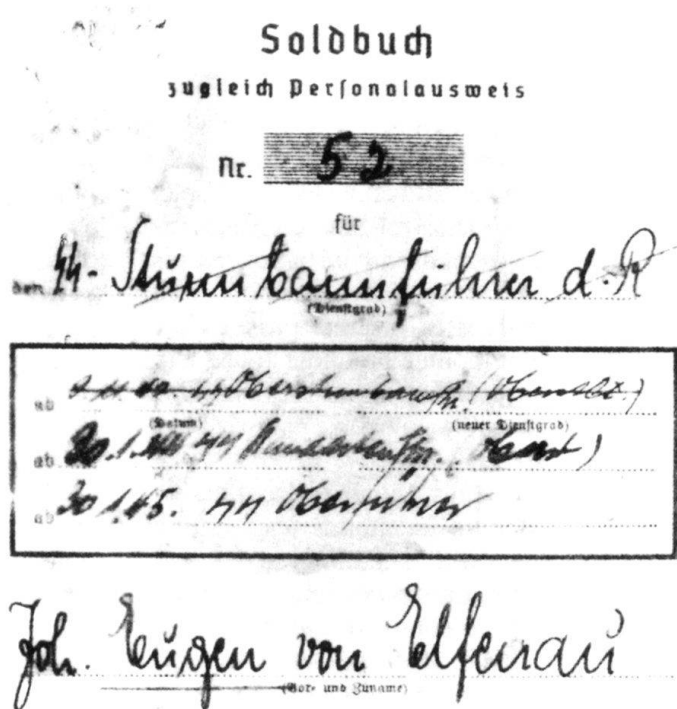 Soldbuch
zugleich Personalausweis
Nr. 52
für
den SS-Sturmbannführer d. R
(Dienstgrad)
ab SS Obersturmbannf. (Oberstlt.)
(Datum) (neuer Dienstgrad)
ab 30.1.44 SS Standartenfhr. Oberst)
ab 30.1.45. SS Oberführer
Joh. Eugen von Elfenau
(Vor- und Zuname)